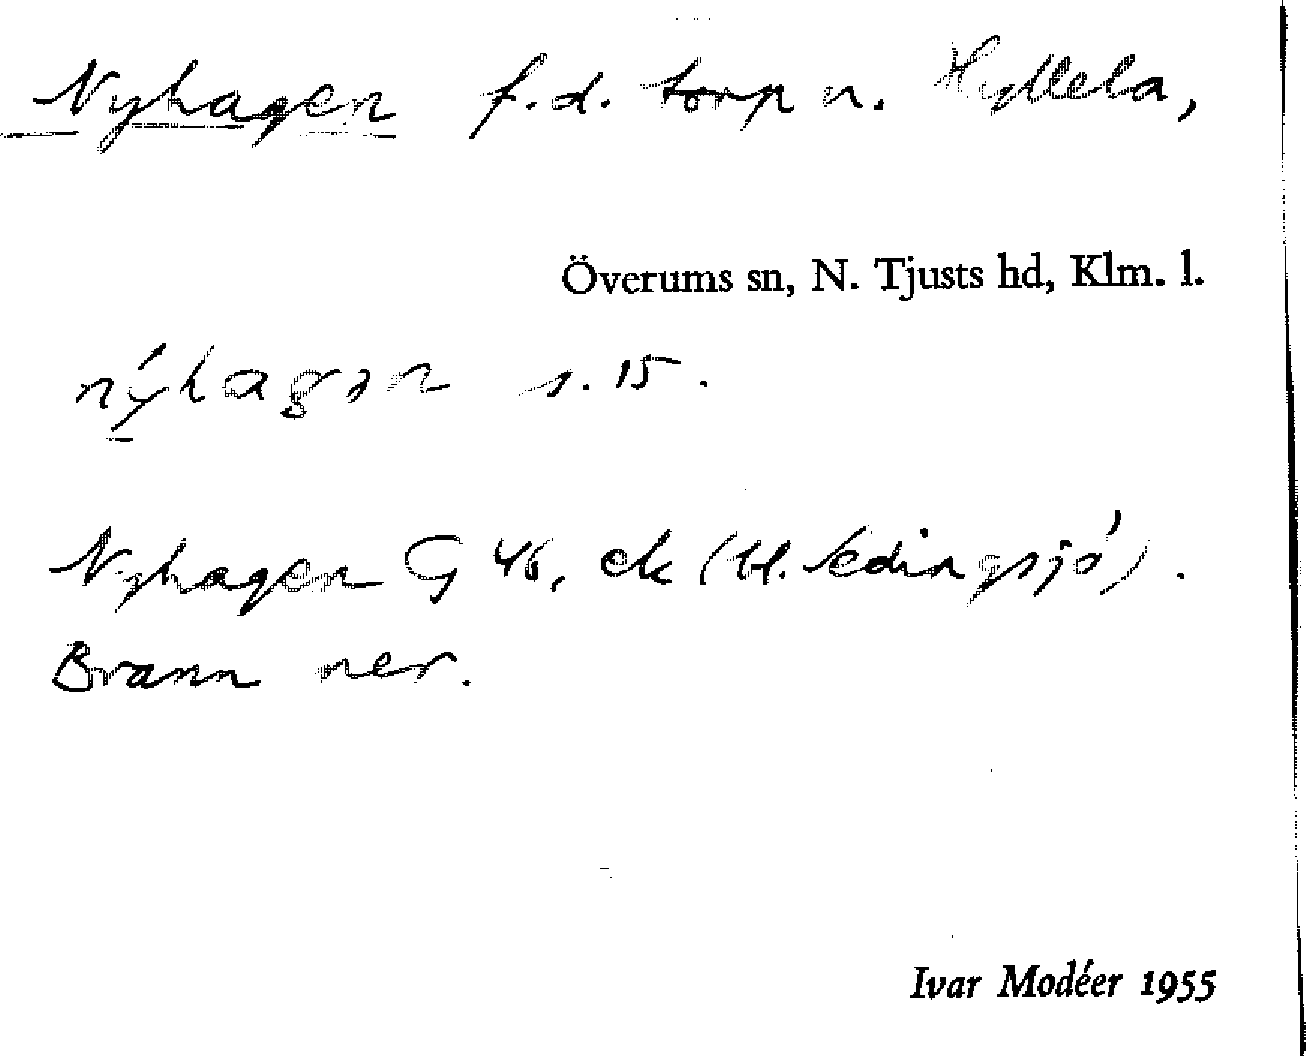 Nyhagen f.d. torp u. Hyllela,
Överums sn, N. Tjusts hd, Klm. l.
nýhagən s. 15.
Nyhagen G 46, ek (H. Vedingsjö).
Brann ner.
Ivar Modéer 1955